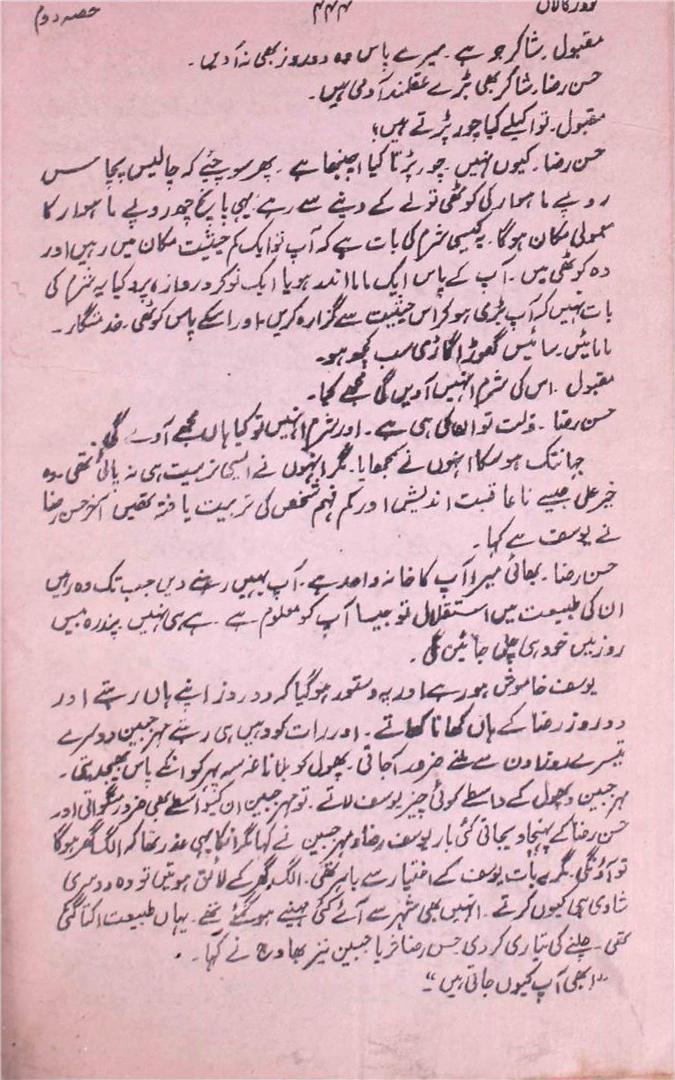 حصہ دوم
۴۴۴
مقبول۔ شاکر جو ہے۔ میرے پاس وہ دو روز بھی نہ آدیں۔
حسن رضا۔ شاکر بھی بڑے عقلمند آدمی ہیں۔
مقبول۔ تو اکیلے کیا چور پڑتے ہیں؟
حسن رضا۔ کیوں نہیں۔ چور پڑنا کیا اچنبھا ہے۔ پھر سوچئے کہ چالیس پچاس
روپے ماہوار کی کوٹھی تو لے کے دینے سے رہے یہی پانچ چھ روپے ماہوار کا
معمولی مکان ہوگا۔ یہ کیسی شرم کی بات ہے کہ آپ تو ایک کم حیثیت مکان میں رہیں اور
وہ کوٹھی میں۔ آپ کے پاس ایک ماما اندر ہو یا ایک نوکر دروازہ پر۔ کیا یہ شرم کی
بات نہیں کہ آپ بڑی ہوکر اس حیثیت سے گزارہ کریں۔ اور اسکے پاس کوٹھی۔ خدمتگار۔
مامائیں۔ سائیس گھوڑا گاڑی سب کچھ ہو۔
مقبول۔ اس کی شرم انہیں آدیں گی مجھے کیا۔
حسن رضا۔ ذلت تو انکی ہی ہے۔ اور شرم انہیں تو کیا ہاں مجھے آوے گی۔
جہانتک ہوسکا انہوں نے سمجھایا۔ مگر انہوں نے ایسی تربیت ہی نہ پائی تھی۔ وہ
خیر علی جیسے ناعاقبت اندیش اور کم فہم شخص کی تربیت یافتہ تھیں آخر حسن رضا
نے یوسف سے کہا۔
حسن رضا۔ بھائی میرا آپ کا خانہ واحد ہے۔ آپ یہیں رہنے دیں جب تک وہ رہیں
ان کی طبیعت میں استقلال تو جیسا آپ کو معلوم ہے۔ ہے ہی نہیں۔ پندرہ بیس
روز میں خود ہی چلی جائیں گی۔
یوسف خاموش ہو رہے اور یہ دستور ہوگیا کہ دو روز اپنے ہاں رہتے اور
دو روز رضا کے ہاں کھانا کھاتے۔ اور رات کو وہیں ہی رہتے مہر جبین دوسرے
تیسرے روز ان سے ملنے ضرور آجاتی۔ پھول کو بلا ناغہ سہ پہر کو انکے پاس بھیجدیتی۔
مہر جبین و پھول کے واسطے کوئی چیز یوسف لاتے۔ تو مہر جبین ان کیواسطے بھی ضرور منگواتی اور
حسن رضا کے پہنچا دیجاتی کئی بار یوسف رضا و مہر جبین نے کہا مگر انکا یہی عذر تھا کہ الگ گھر ہوگا
تو آؤنگی۔ مگر یہ بات یوسف کے اختیار سے باہر تھی۔ الگ گھر کے لائق ہوتیں تو وہ دوسری
شادی ہی کیوں کرتے۔ انہیں بھی شہر سے آئے کئی مہینے ہوگئے تھے۔ یہاں طبیعت اکتا گئی
تھی۔ چلنے کی تیاری کردی حسن رضا ثریا جبین نیز بھاوج نے کہا۔
"ابھی آپ کیوں جاتی ہیں"۔